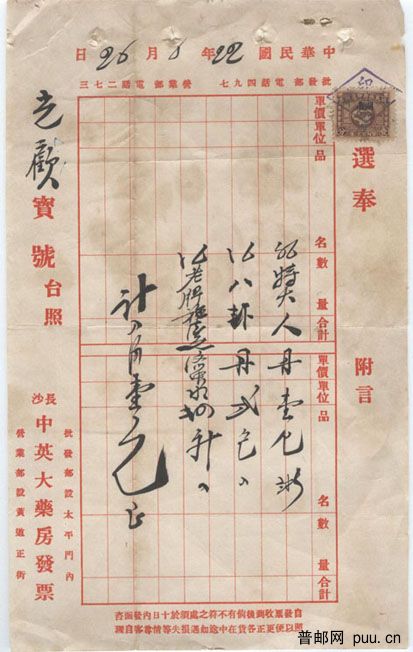 中華民國22年8月26日
批發部電話四九七 營業部電話二七三
選奉
附言
單價單位品名數量合計
單價單位品名數量合計
人丹壹包
八卦丹弍包
計
光顧寶號台照
長沙中英大藥房發票
批發部設太平門內
營業部設黃道正街
自發票收到後倘有不符之處須於十日內發函查
照以便更正各貨在中途如遇損失等情貴客自理
普邮网 puu.cn